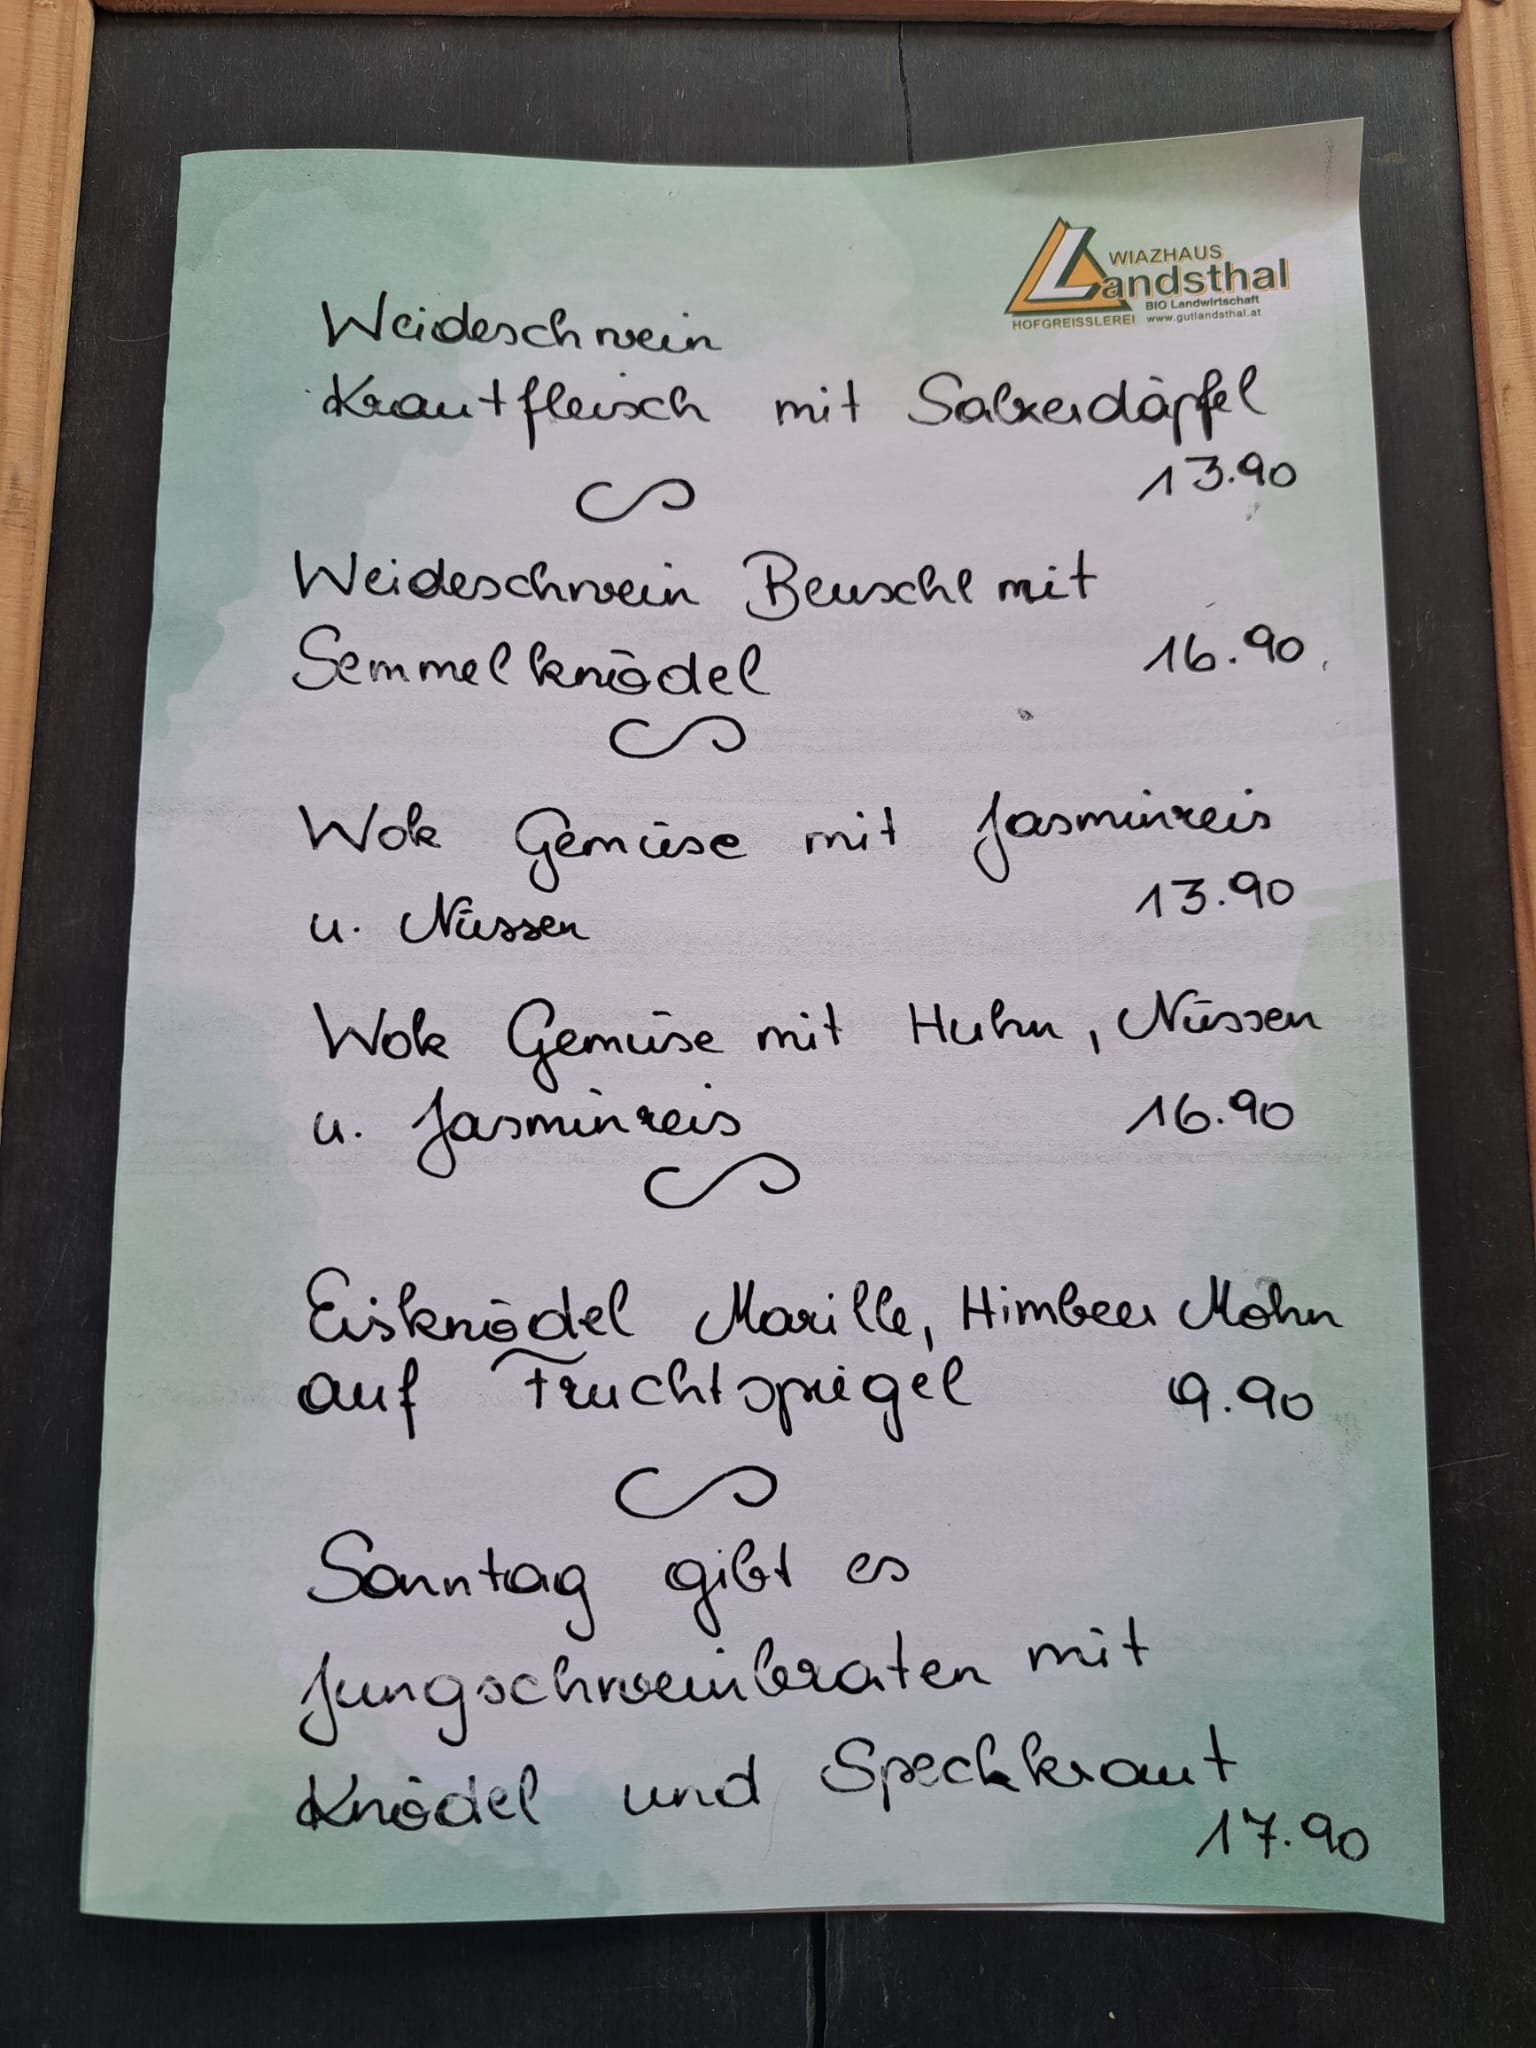 WIAZHAUS
Landsthal
BIO Landwirtschaft
HOFGREISSLEREI www.gutlandsthal.at
Weideschwein
Krautfleisch mit Salzerdäpfel
13.90
Weideschwein Beuschl mit
Semmelknödel 16.90
Wok Gemüse mit Jasminreis
u. Nüssen 13.90
Wok Gemüse mit Huhn, Nüssen
u. Jasminreis 16.90
Eisknödel Marille, Himbeer Mohn
auf Fruchtspiegel 9.90
Sonntag gibt es
Jungschweinbraten mit
Knödel und Speckkraut
17.90